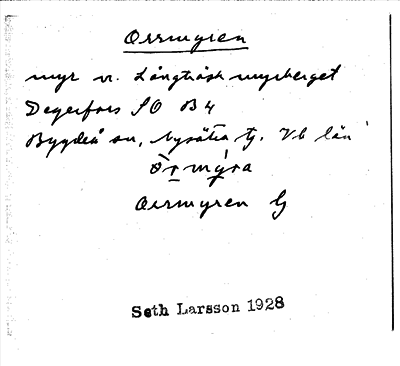 Orrmyren
myr v. Långträskmyrberget
Degerfors SO B4
Bygdeå sn, Nysätra tg. Vb län
òrmýra
Orrmyren G
Seth Larsson 1928